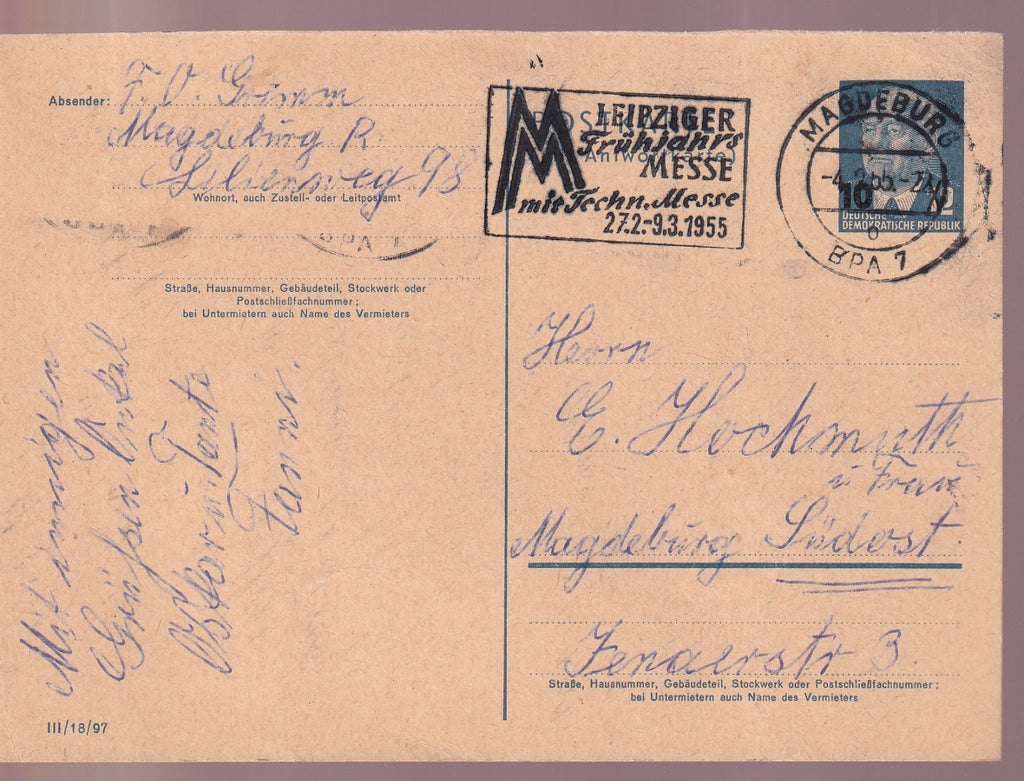 Absender: F. O. Grimm
Magdeburg R.
Lilienweg 98
Wohnort, auch Zustell- oder Leitpostamt
BPA 1
Straße, Hausnummer, Gebäudeteil, Stockwerk oder
Postschließfachnummer;
bei Untermietern auch Name des Vermieters
Mit innigen
Grüßen Onkel
Oskar u Tante
III/18/97
LEIPZIGER
Frühjahrs
MESSE
mit Techn. Messe
27.2.-9.3.1955
(Antwortkarte)
MAGDEBURG
BPA 1
10
DEUTSCHE
DEMOKRATISCHE REPUBLIK
Herrn
E. Hochmuth
u Frau
Magdeburg Südost.
Jenaerstr 3.
Straße, Hausnummer, Gebäudeteil, Stockwerk oder Postschließfachnummer;
bei Untermietern auch Name des Vermieters